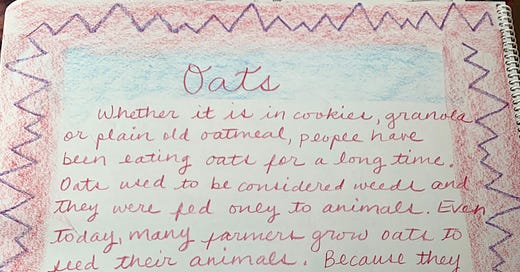 Oats
Whether it is in cookies, granola
or plain old oatmeal, people have
been eating oats for a long time.
Oats used to be considered weeds and
they were fed only to animals. Even
today, many farmers grow oats to
feed their animals. Because they